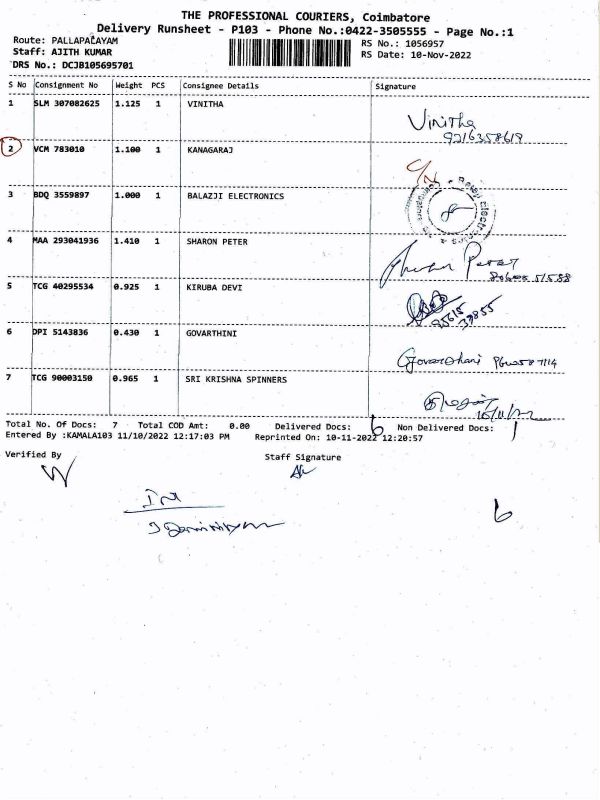 THE PROFESSIONAL COURIERS, Coimbatore
Delivery Runsheet - P103 - Phone No.:0422-3505555 - Page No.:1
Route: PALLAPALAYAM
Staff: AJITH KUMAR
DRS No.: DCJB105695701
RS No.: 1056957
RS Date: 10-Nov-2022
S No Consignment No Weight PCS Consignee Details Signature
1 SLM 307082625 1.125 1 VINITHA
Vinitha
9216358619
2 VCM 783010 1.100 1 KANAGARAJ
C/N
3 BDQ 3559897 1.000 1 BALAZJI ELECTRONICS
4 MAA 293041936 1.410 1 SHARON PETER
Sharon Peter
5 TCG 40295534 0.925 1 KIRUBA DEVI
95615
39855
6 DPI 5143836 0.430 1 GOVARTHINI
Govarthani
7 TCG 90003150 0.965 1 SRI KRISHNA SPINNERS
10/11/22
Total No. Of Docs: 7 Total COD Amt: 0.00 Delivered Docs: 6 Non Delivered Docs: 1
Entered By :KAMALA103 11/10/2022 12:17:03 PM Reprinted On: 10-11-2022 12:20:57
Verified By Staff Signature
6